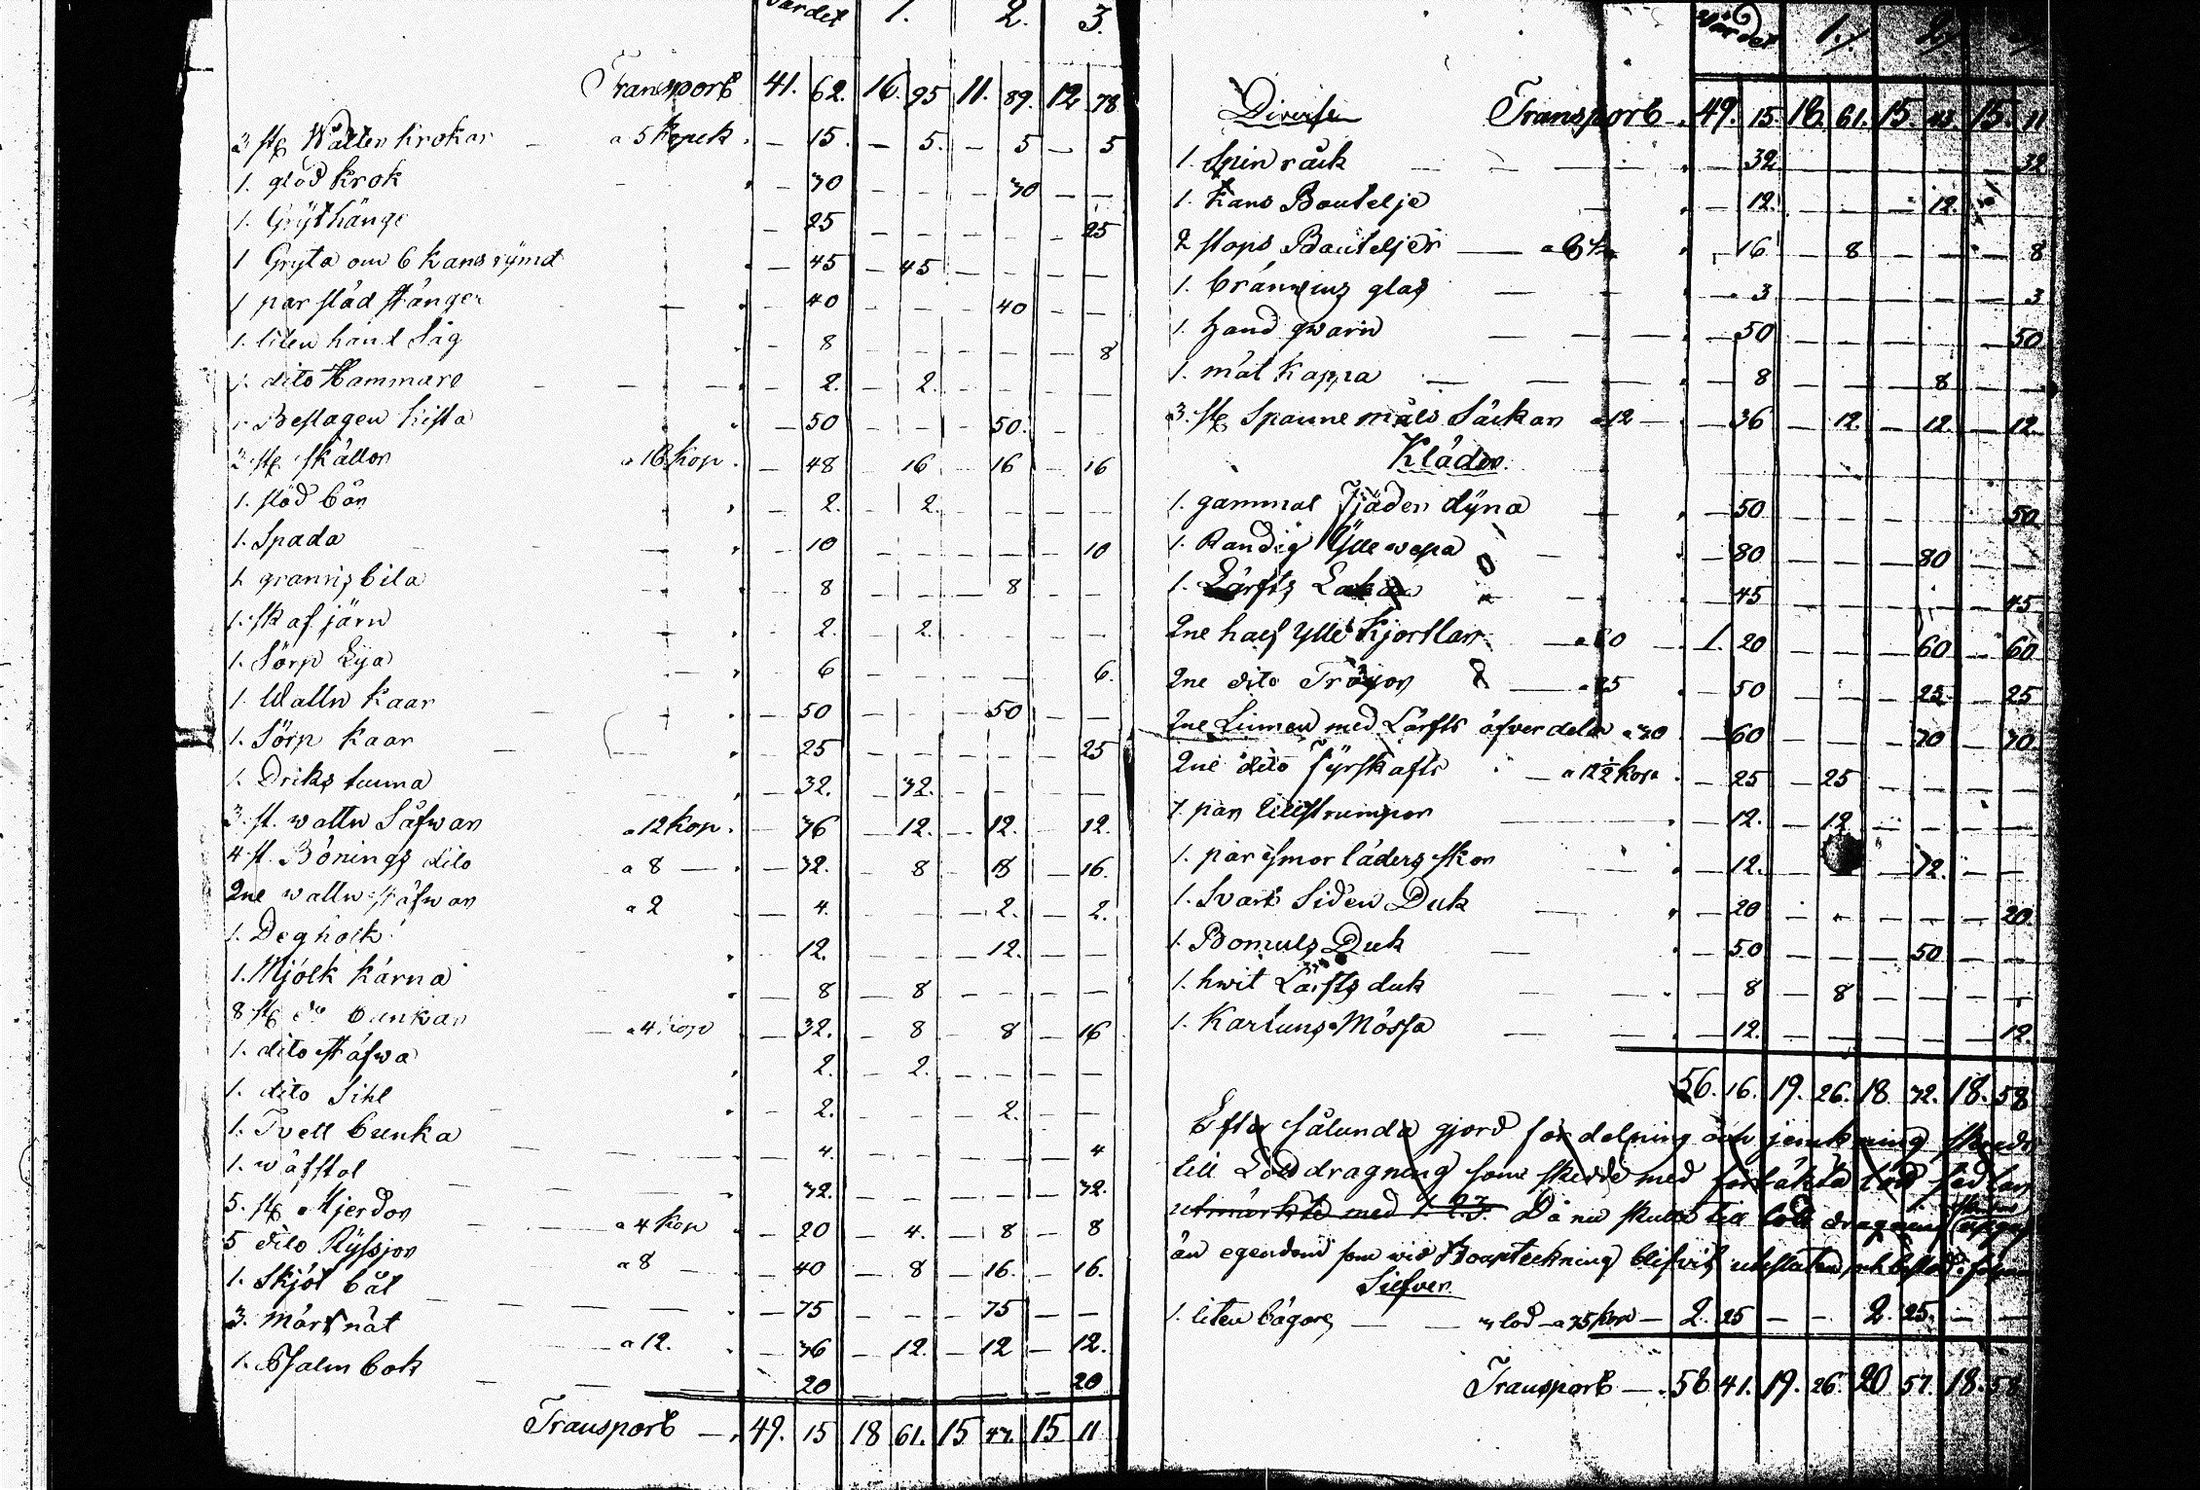 värdet 1. 2. 3.
Transport 41. 62. 16. 95 11. 89. 12 78
3 st Watten krokar a 5 Kopek — 15. — 5. — 5 — 5
1. glöd krok — 30 — — — 30 — —
1. Grythänge — 25 — — — — — 25
1 Gryta om 6 kans rymd — 45 — 45 — — — —
1 par städ stänger — 40 — — — 40 — —
1. liten hand Såg — 8 — — — — — 8
1. dito Hammare — 2. — 2. — — — —
1. Beslagen kista — 50 — — — 50. — —
3 st skällor a 16 kop. — 48 16 — 16 — 16
1. stöd bår — 2. — 2. — — — —
1. Spada — 10 — — — — — 10
1. gran bila — 8 — — — 8 — —
1. skaf järn — 2. — 2. — — — —
1. Sörp Lya — 6 — — — — — 6.
1. Wattn kaar — 50 — — — 50 — —
1. Sörp kaar — 25 — — — — — 25
1. Driks tunna — 32. — 32. — — — —
3. st. wattn Såfwar a 12 kop. — 36 — 12. — 12. — 12.
4. st. Bönings dito a 8 — 32. — 8 — 8 — 16.
2ne wattn stäfwor a 2 — 4. — — — 2. — 2.
1. Deg holk — 12. — — — 12. — —
1. Mjölk kärna — 8 — 8 — — — —
8 st do bunkar a 4 kop — 32. — 8 — 8 — 16
1. dito stäfwa — 2. — 2. — — — —
1. dito Sihl — 2. — — — 2. — —
1. Tvett bunka — 4. — — — — — 4
1. wäfstol — 32. — — — — — 32.
5. st Mjerdor a 4 kop — 20 — 4. — 8 — 8
5 dito Ryssjor a 8 — 40 — 8 — 16. — 16.
1. Skjöt båt — 75 — — — 75 — —
3. Mört nät a 12. — 36 — 12. — 12 — 12.
1. Psalm bok — 20 — — — — — 20
Transport — 49. 15 18 61. 15 43. 15 11
Värdet 1. 2. 3.
Diverse Transport — 49. 15. 18. 61. 15. 43. 15. 11
1. Spin råck — 32 — — — — — 32
1. Kans Boutelje — 12. — — — 12. — —
2 stops Bouteljer a 8 k — 16 — 8 — — — 8
1. brännwins glas — 3 — — — — — 3
1. Hand qwarn — 50 — — — — — 50
1. mät kappa — 8 — — — 8 — —
3. st Spanne måls Säckar a 12 — 36 — 12. — 12. — 12
Kläder
1. gammal Fjäder dyna — 50 — — — — — 50
1. Randig Ylle wepa — 80 — — — 80 — —
1. Lärfts Lakan — 45 — — — — — 45
2ne half Ylle Kjortlar a 60 1. 20 — — — 60 — 60
2ne dito Tröjor a 25 — 50 — — — 25 — 25
2ne Linnen med Lärfts öfverdelar a 30 — 60 — — — 30 — 30
2ne dito Fyrskafts a 12½ kop — 25 — 25 — — — —
1. par Ullstrumpor — 12. — 12 — — — —
1. par smorläders skor — 12. — — — 12. — —
1. Svart Siden Duk — 20 — — — — — 20.
1. Bomuls Duk — 50 — — — 50 — —
1. hwit Lärfts duk — 8 — 8 — — — —
1. Kartuns Mössa — 12. — — — — — 12.
56. 16. 19. 26. 18 32. 18. 58
Efter sålunda gjord fördelning och jemkning
till Lottdragning som skedde med lika lod
utmärkte med 1. 2. 3. Då nu skulle till lott dragning
än egendom som wid Booptekning blifvit
Silfver
1. liten bägare 3 lod a 75 kop — 2. 25 — — 2. 25. — —
Transport — 58 41. 19. 26. 20 57. 18. 58